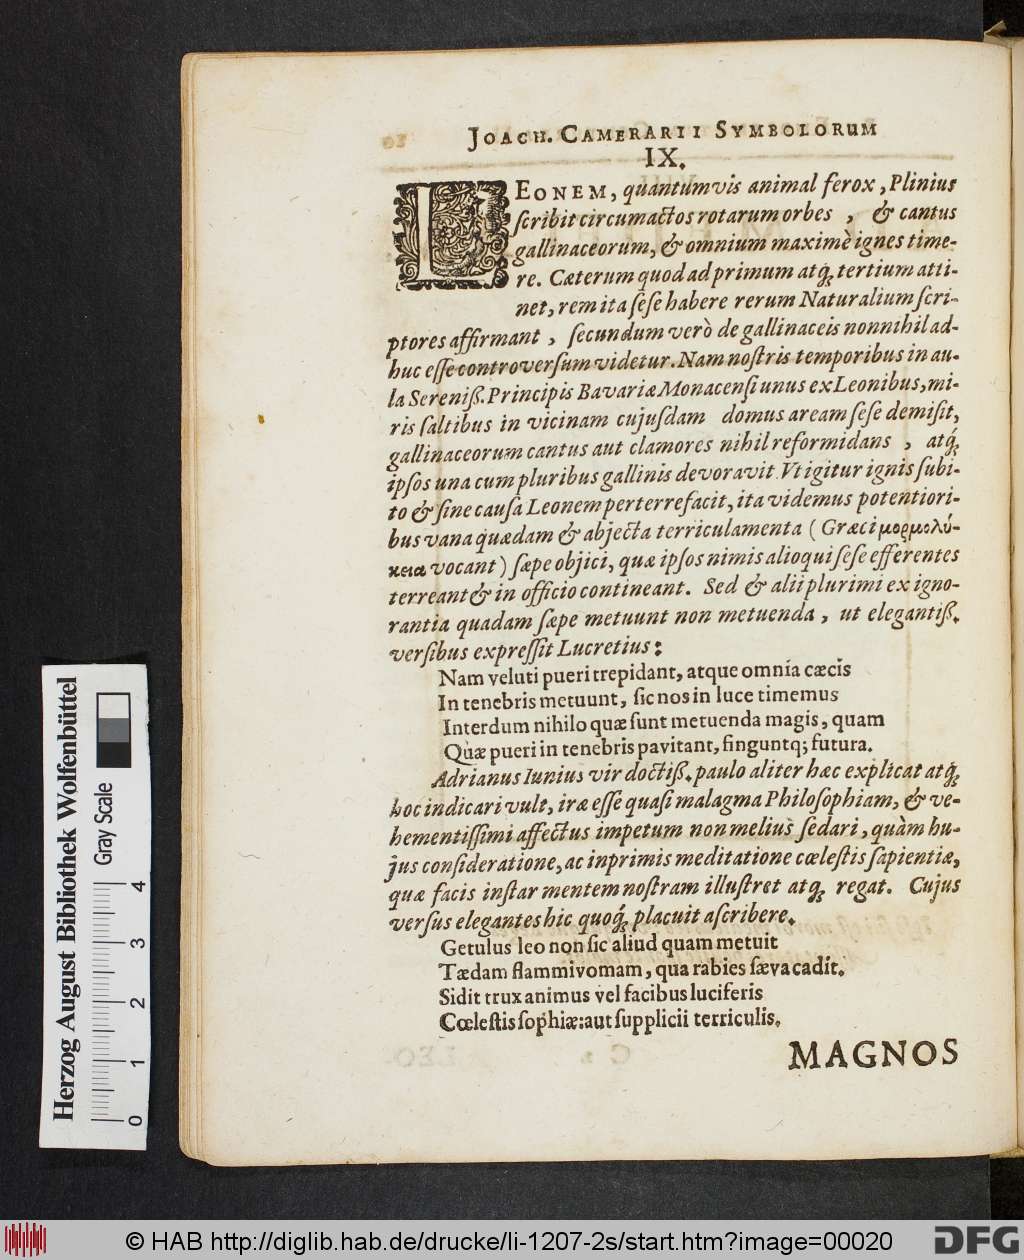 JOACH. CAMERARII SYMBOLORUM
IX.
LEONEM, quantumvis animal ferox, Plinius
ſcribit circumactos rotarum orbes, & cantus
gallinaceorum, & omnium maximè ignes time-
re. Cæterum quod ad primum atq́; tertium atti-
net, rem ita ſeſe habere rerum Naturalium ſcri-
ptores affirmant, ſecundum verò de gallinaceis nonnihil ad-
huc eſſe controverſum videtur. Nam noſtris temporibus in au-
la Sereniß. Principis Bavariæ Monacenſi unus ex Leonibus, mi-
ris ſaltibus in vicinam cujuſdam domus aream ſeſe demiſit,
gallinaceorum cantus aut clamores nihil reformidans, atq́;
ipſos una cum pluribus gallinis devoravit. Vt igitur ignis ſubi-
to & ſine cauſa Leonem perterrefacit, ita videmus potentiori-
bus vana quædam & abjecta terriculamenta (Græci μορμολύ-
κεια vocant) ſæpe objici, quæ ipſos nimis alioqui ſeſe efferentes
terreant & in officio contineant. Sed & alii plurimi ex igno-
rantia quadam ſæpe metuunt non metuenda, ut elegantiß.
verſibus expreſſit Lucretius:
Nam veluti pueri trepidant, atque omnia cæcis
In tenebris metuunt, ſic nos in luce timemus
Interdum nihilo quæ ſunt metuenda magis, quam
Quæ pueri in tenebris pavitant, finguntq; futura.
Adrianus Iunius vir doctiß. paulo aliter hæc explicat atq́;
hoc indicari vult, iræ eſſe quaſi malagma Philoſophiam, & ve-
hementiſſimi affectus impetum non melius ſedari, quàm hu-
jus conſideratione, ac inprimis meditatione cœleſtis ſapientiæ,
quæ facis inſtar mentem noſtram illuſtret atq́; regat. Cujus
verſus elegantes hic quoq́; placuit aſcribere.
Getulus leo non ſic aliud quam metuit
Tædam flammivomam, qua rabies ſæva cadit.
Sidit trux animus vel facibus luciferis
Cœleſtis ſophiæ: aut ſupplicii terriculis.
MAGNOS
Herzog August Bibliothek Wolfenbüttel
Gray Scale
0 1 2 3 4
© HAB http://diglib.hab.de/drucke/li-1207-2s/start.htm?image=00020
DFG